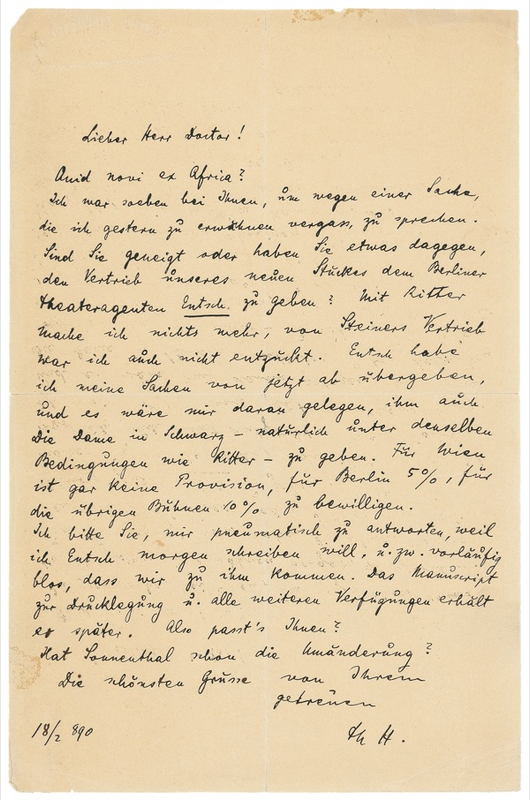 Lieber Herr Doctor!
Quid novi ex Africa?
Ich war soeben bei Ihnen, um wegen einer Sache,
die ich gestern zu erwähnen vergass, zu sprechen.
Sind Sie geneigt oder haben Sie etwas dagegen,
den Vertrieb unseres neuen Stückes dem Berliner
Theateragenten Entsch zu geben? Mit Ritter
mache ich nichts mehr, von Steiners Vertrieb
war ich auch nicht entzückt. Entsch habe
ich meine Sachen von jetzt ab übergeben,
und es wäre mir daran gelegen, ihm auch
Die Dame in Schwarz – natürlich unter denselben
Bedingungen wie Ritter – zu geben. Für Wien
ist gar keine Provision, für Berlin 5%, für
die übrigen Bühnen 10% zu bewilligen.
Ich bitte Sie, mir pneumatisch zu antworten, weil
ich Entsch morgen schreiben will, u. zw. vorläufig
blos, dass wir zu ihm kommen. Das Manuscript
zur Drucklegung u. alle weiteren Verfügungen erhält
er später. Also passt's Ihnen?
Hat Sonnenthal schon die Umänderung?
Die schönsten Grüsse von Ihrem
getreuen
Th H.
18/2 890